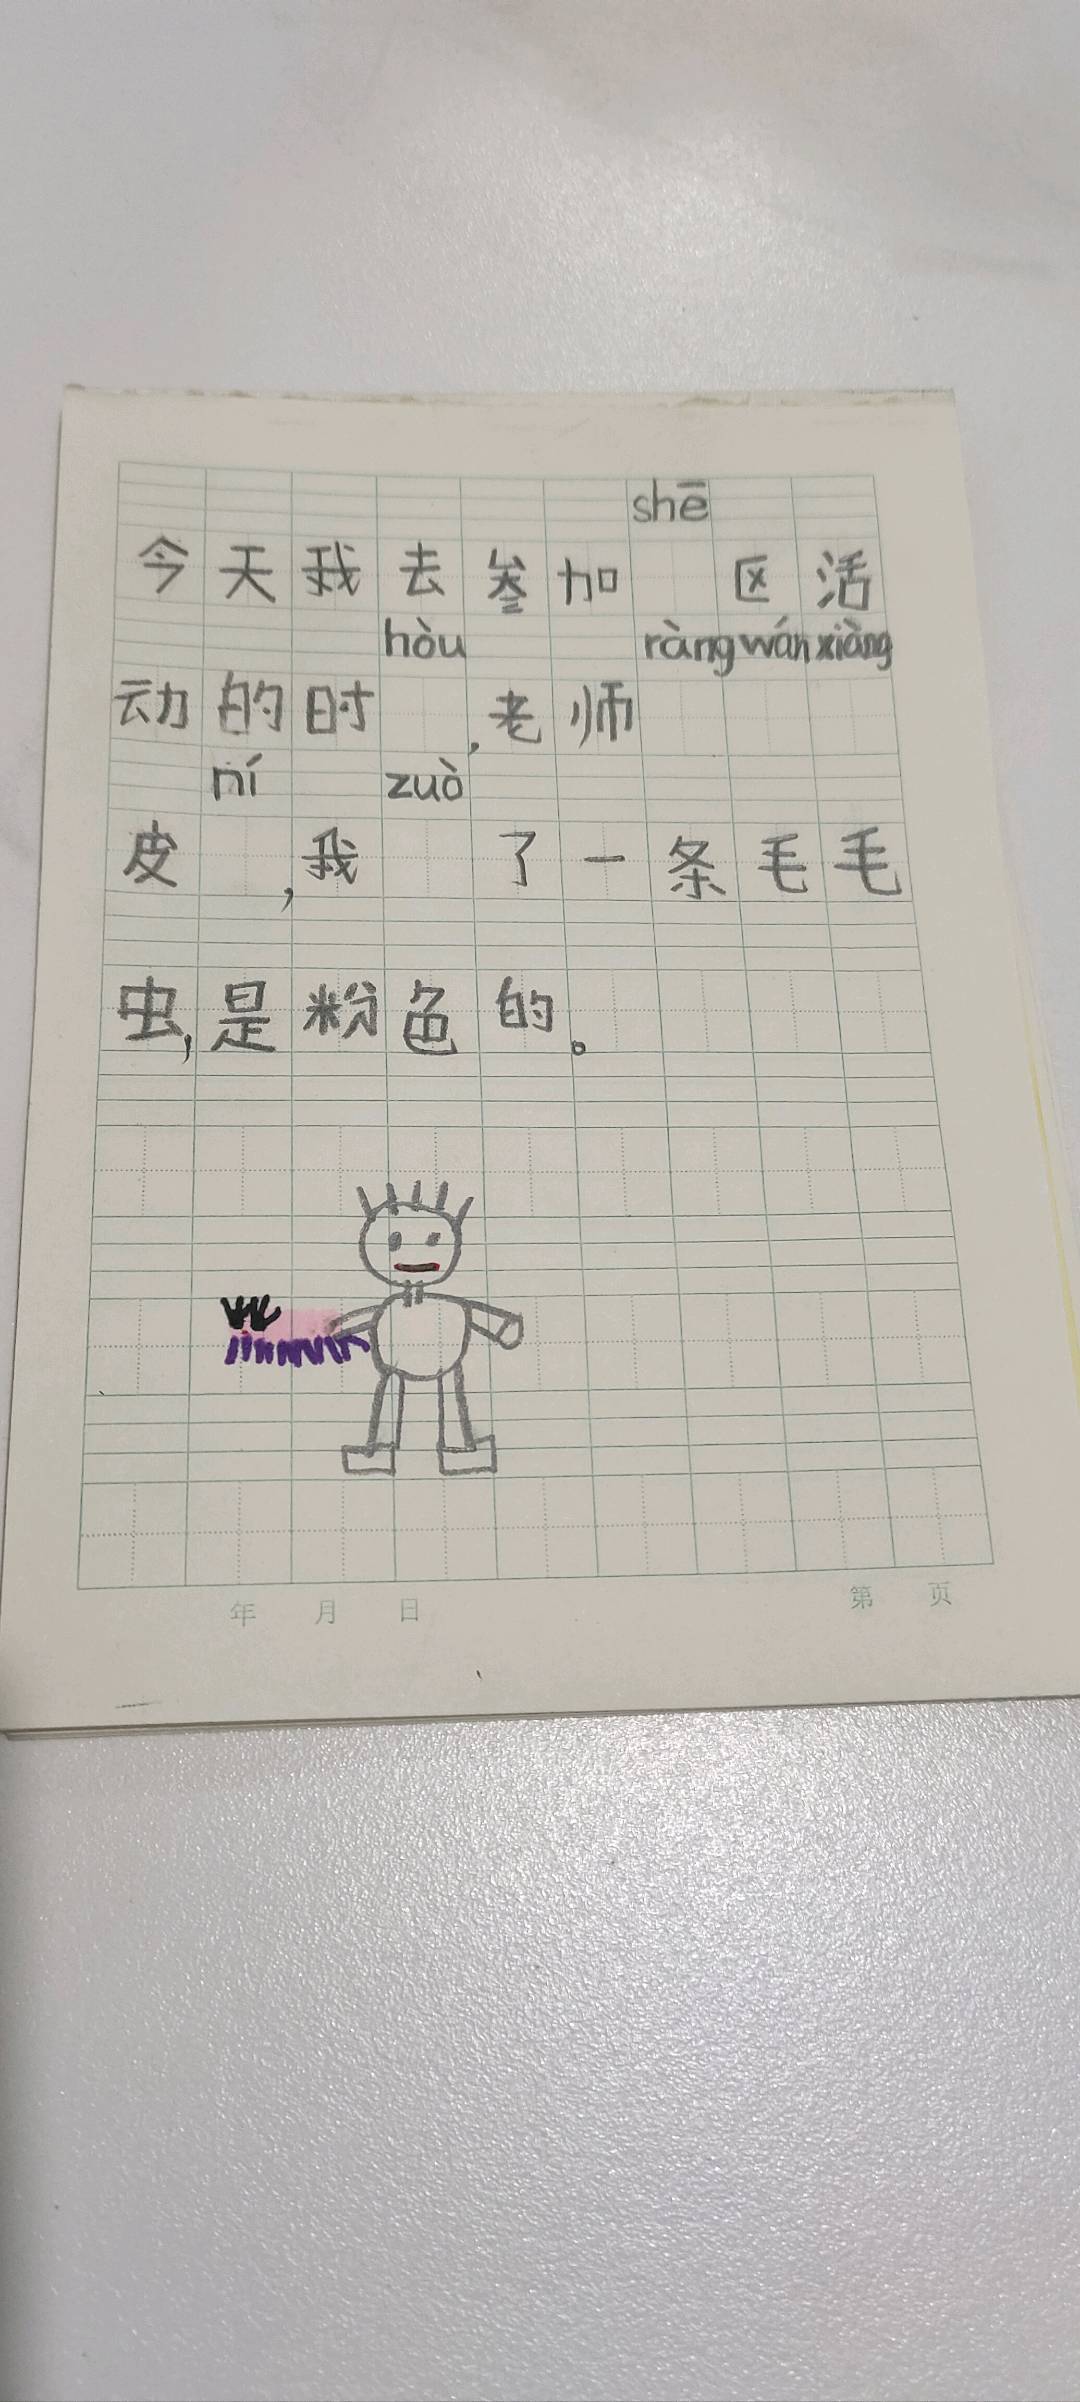 shē
今天我去参加 区活
hòu ràng wán xiàng
动的时 ,老师
ní zuò
皮 ,我 了一条毛毛
虫,是粉色的。
年 月 日 第 页